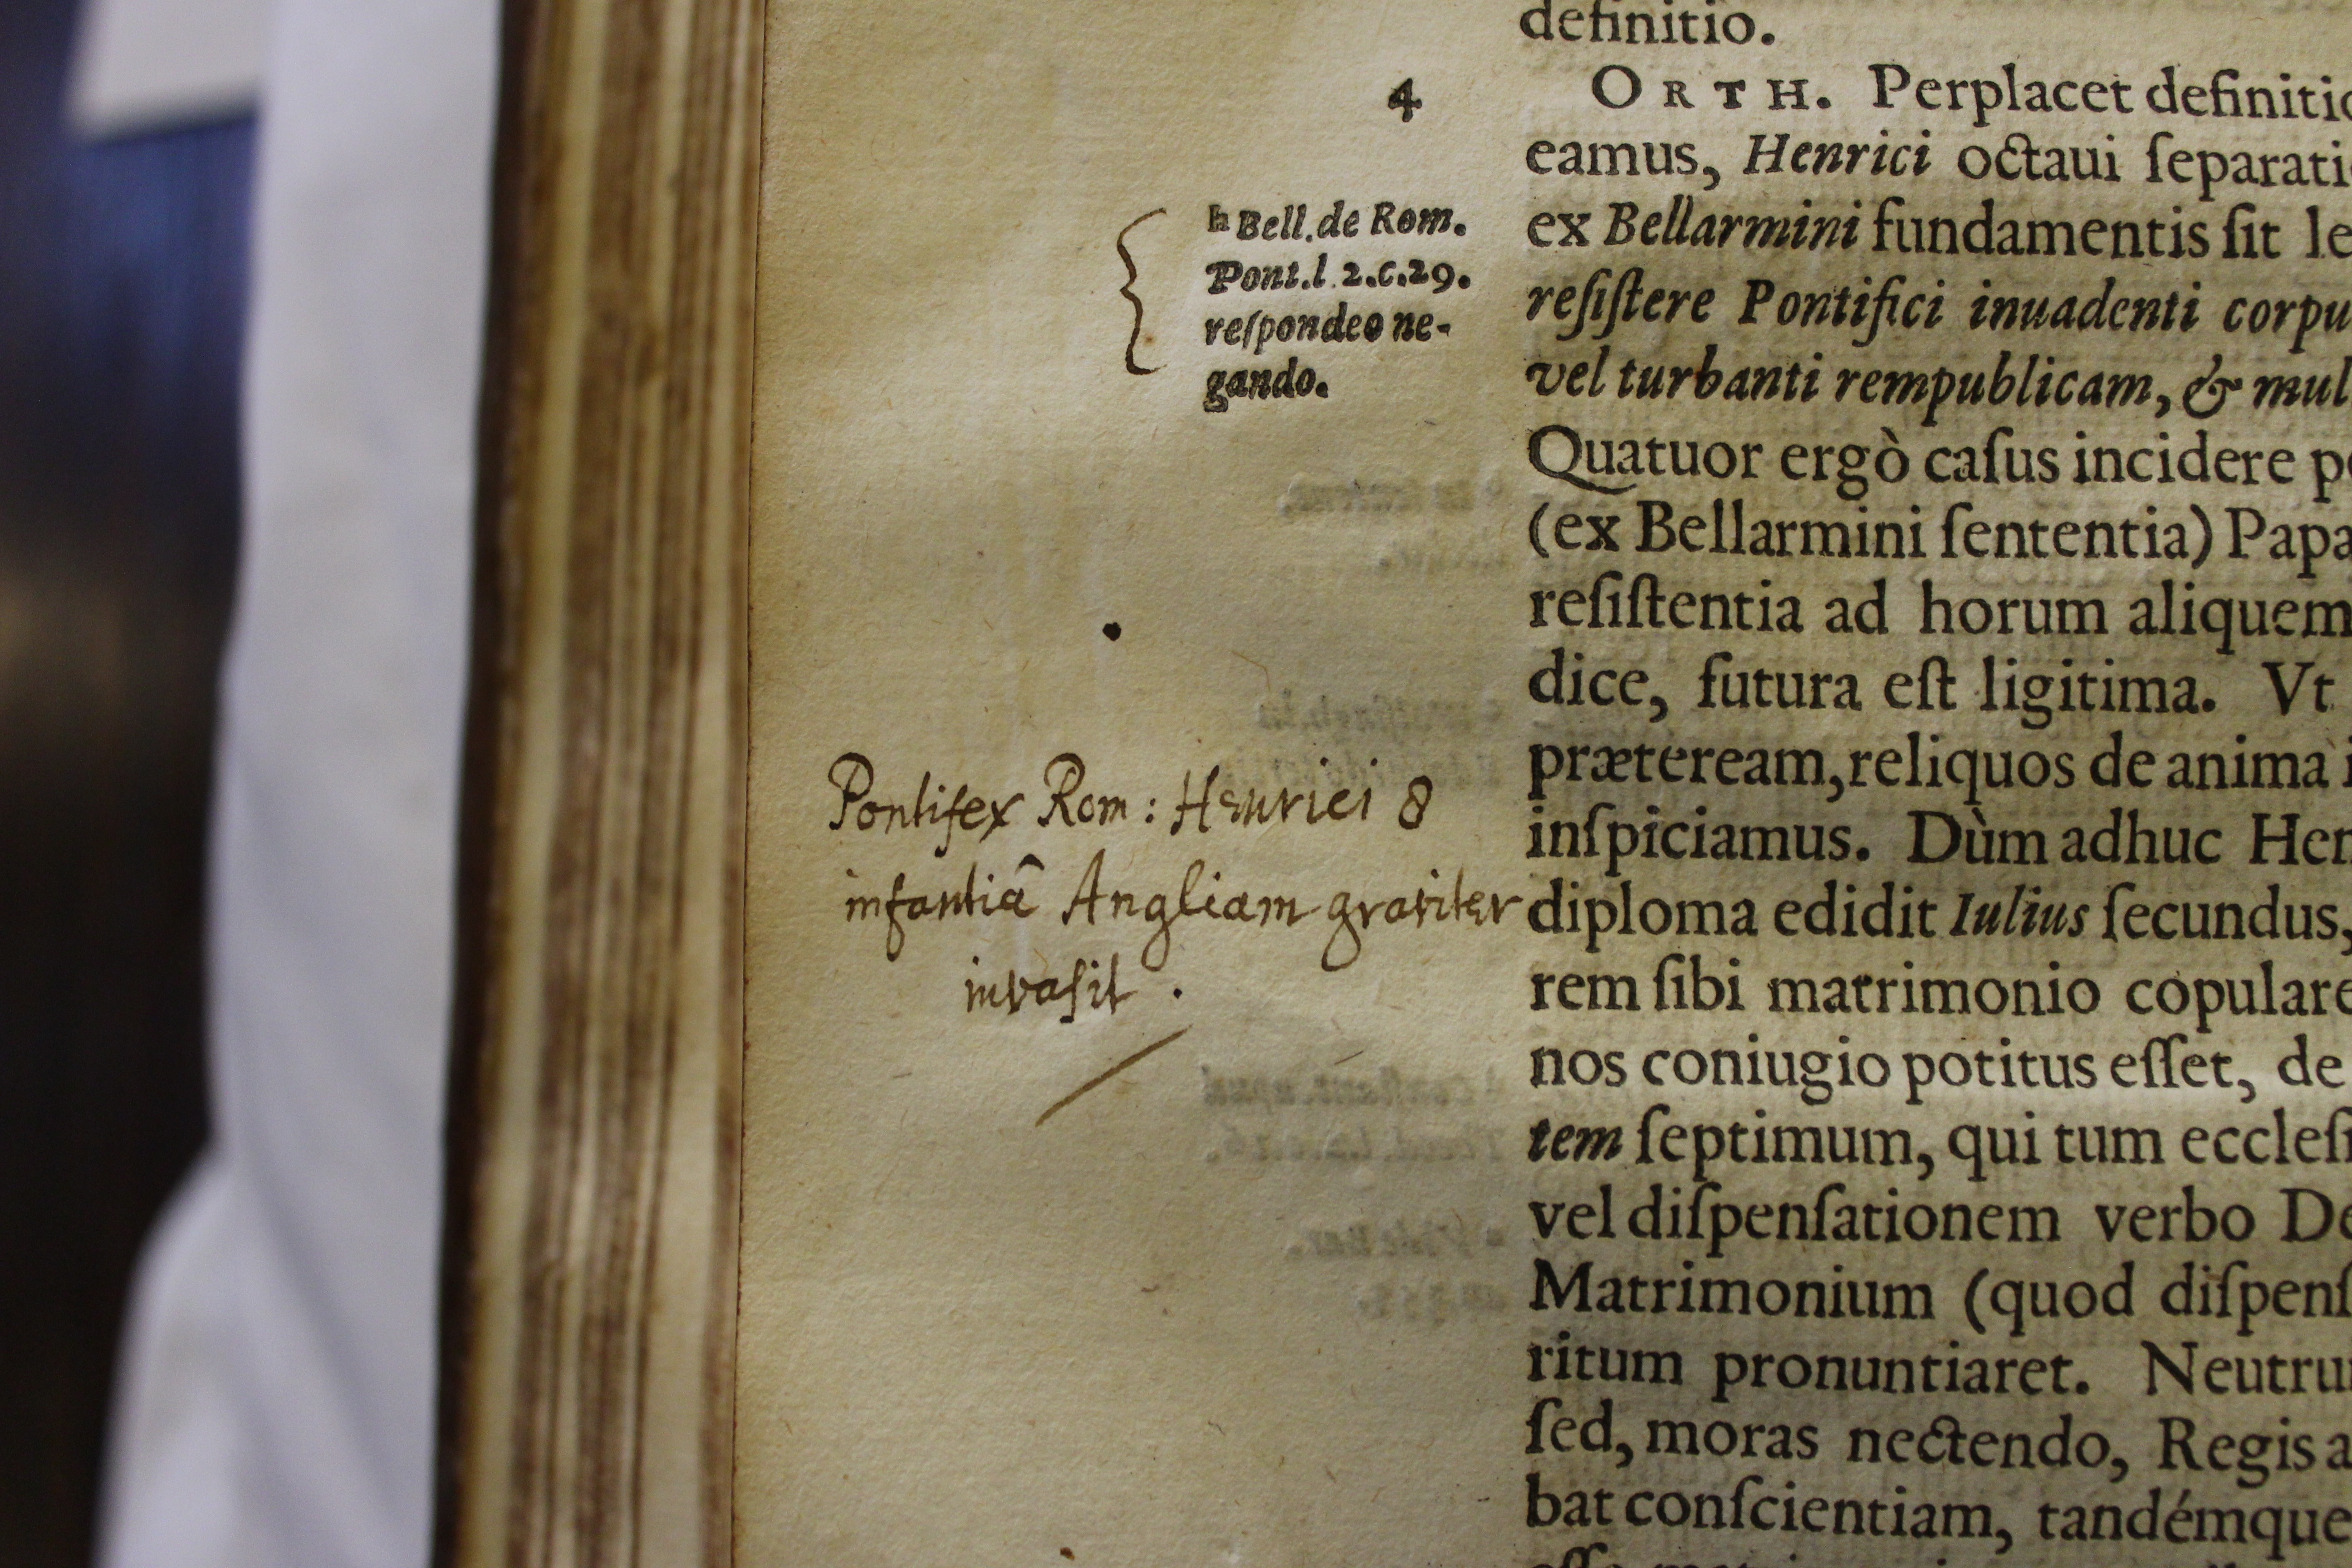 definitio.
4
ORTH. Perplacet definitio
eamus, Henrici octaui ſeparati
h Bell. de Rom.
Pont. l 2.c.29.
reſpondeo ne-
gando.
ex Bellarmini fundamentis ſit le
reſiſtere Pontifici inuadenti corpu
vel turbanti rempublicam, & mul
Quatuor ergò caſus incidere po
(ex Bellarmini ſententia) Papa
reſiſtentia ad horum aliquem
dice, futura eſt ligitima. Vt
præteream, reliquos de anima i
inſpiciamus. Dùm adhuc Hen
Pontifex Rom: Henrici 8
infantiâ Angliam graviter
invaſit.
diploma edidit Iulius ſecundus,
rem ſibi matrimonio copulare
nos coniugio potitus eſſet, de
tem ſeptimum, qui tum eccleſi
vel diſpenſationem verbo De
Matrimonium (quod diſpenſ
ritum pronuntiaret. Neutru
ſed, moras nectendo, Regis a
bat conſcientiam, tandémque